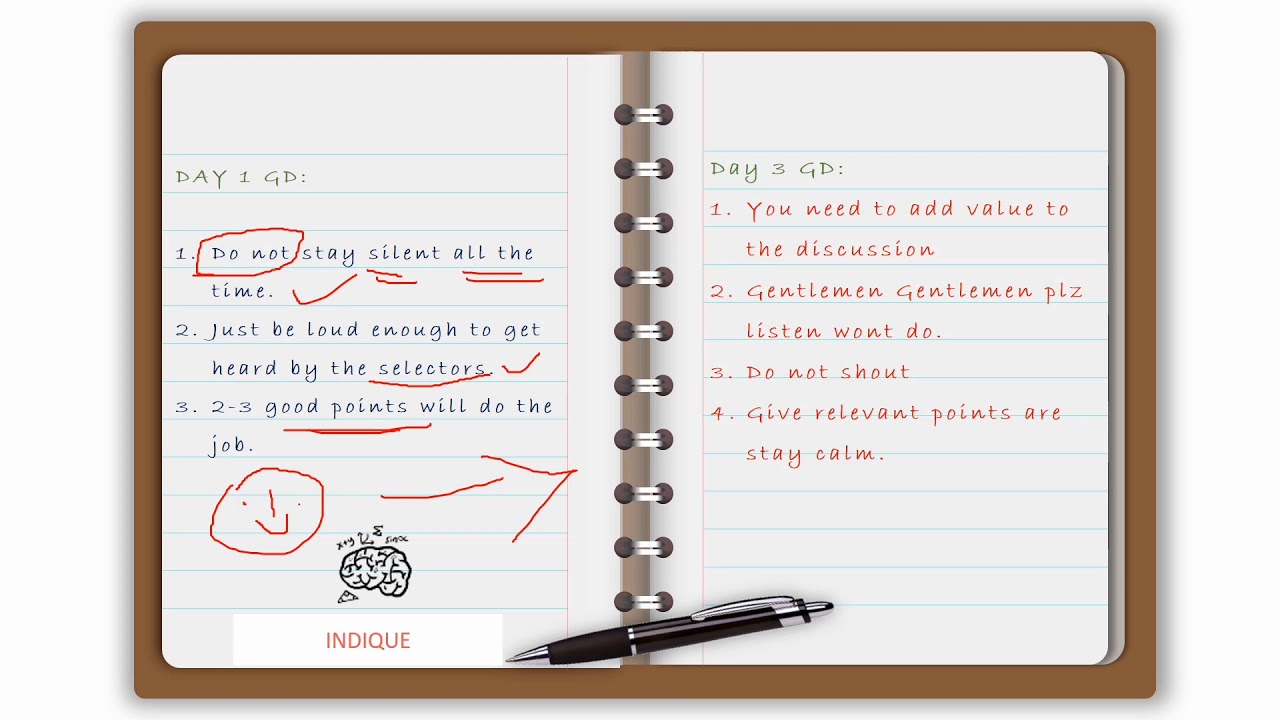 DAY 1 GD:
1. Do not stay silent all the
time.
2. Just be loud enough to get
heard by the selectors.
3. 2-3 good points will do the
job.
x+y Σ sinx
INDIQUE
Day 3 GD:
1. You need to add value to
the discussion
2. Gentlemen Gentlemen plz
listen wont do.
3. Do not shout
4. Give relevant points are
stay calm.